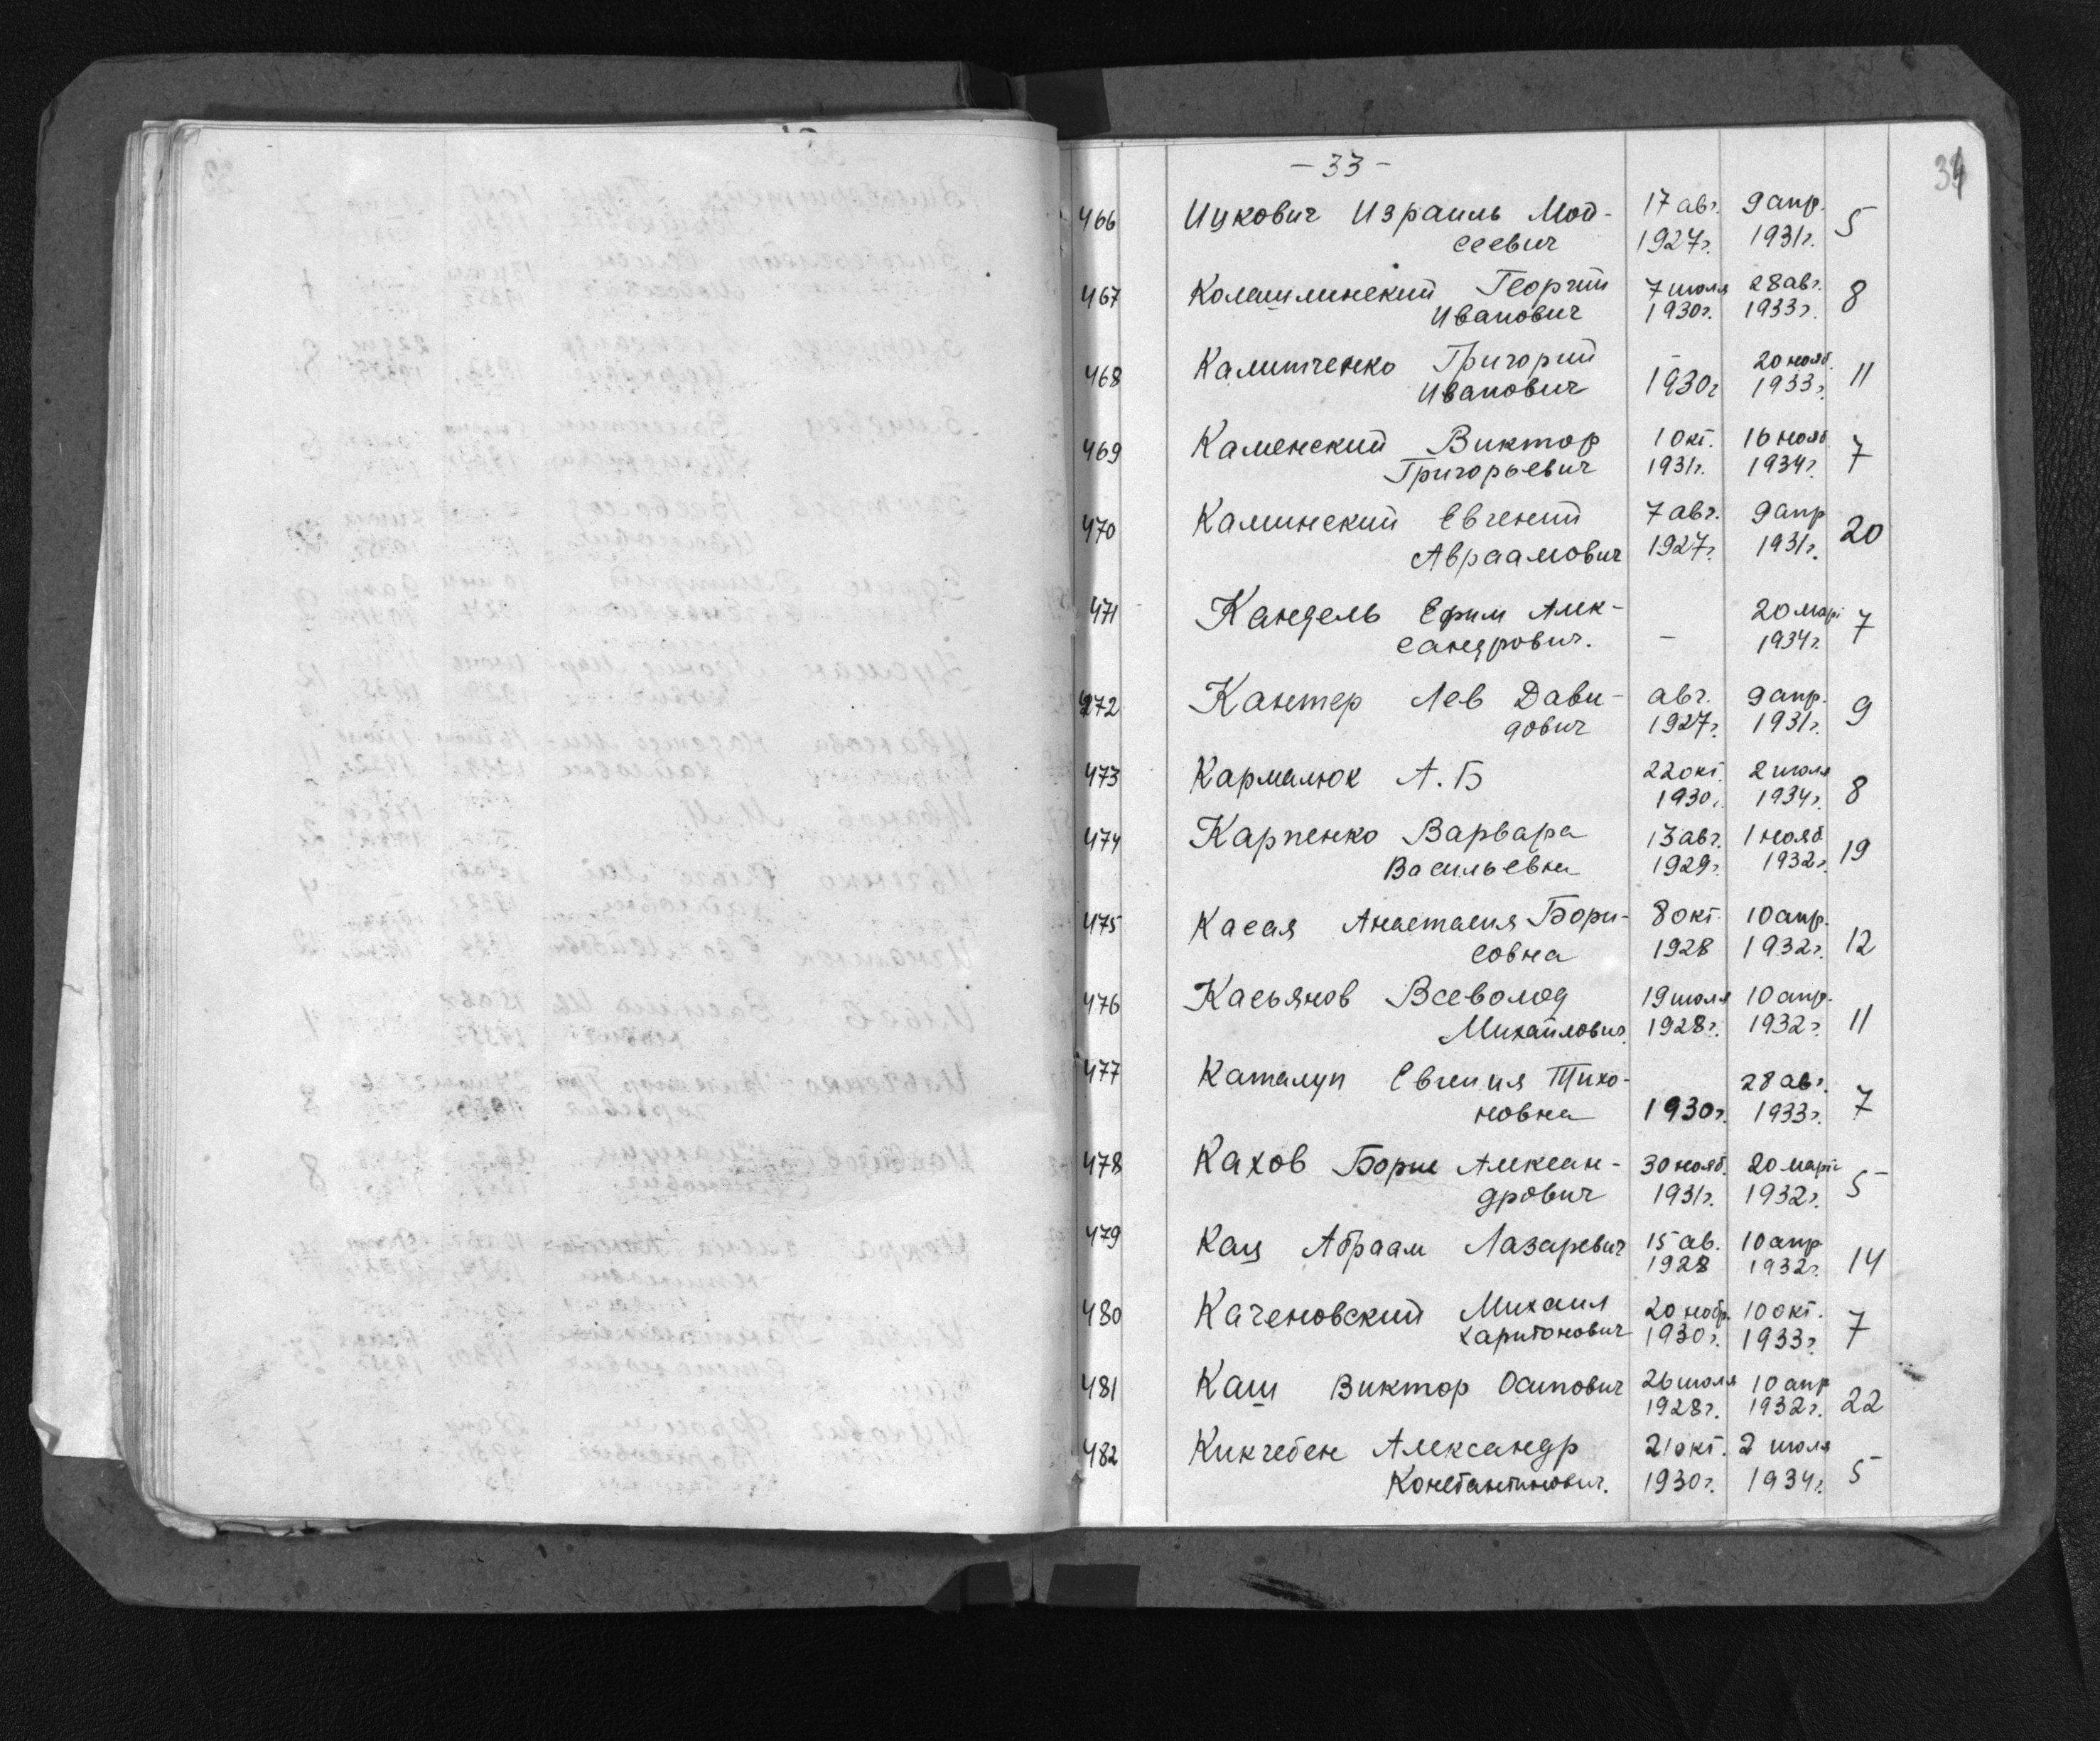 - 33 -
34
466 Ицкович Израиль Мой- 17 авг. 9 апр. 5
сеевич 1927г. 1931г.
467 Георгий 7 июля 28 авг. 8
Иванович 1930г. 1933г.
468 Калитченко Григорий - 20 нояб. 11
Иванович 1930г 1933г.
469 Каменский Виктор 1 окт. 16 нояб. 7
Григорьевич 1931г. 1934г.
470 Каминский Евгений 7 авг. 9 апр 20
Авраамович 1927г. 1931г.
471 Кандель Ефим Алек- 20 март 7
сандрович. - 1934г.
472 Кантер Лев Дави- авг. 9 апр. 9
дович 1927г. 1931г.
473 Кармалюк А. Б 22 окт. 2 июля 8
1930г. 1934г.
474 Карпенко Варвара 13 авг. 1 нояб 19
Васильевна 1929г. 1932г.
475 Касая Анастасия Бори- 8 окт. 10 апр. 12
совна 1928 1932г.
476 Касьянов Всеволод 19 июля 10 апр. 11
Михайлович. 1928г. 1932г.
477 Каталуп Евгения Тихо- 28 авг. 7
новна 1930г. 1933г.
478 Кахов Борис Алексан- 30 нояб. 20 март 5
дрович 1931г. 1932г.
479 Кац Абраам Лазаревич 15 ав. 10 апр 14
1928 1932г.
480 Каченовский Михаил 20 ноябр. 10 окт. 7
Харитонович 1930г. 1933г.
481 Каш Виктор Осипович 26 июля 10 апр 22
1928г. 1932г.
482 Кикчебен Александр 21 окт. 2 июля 5
Константинович. 1930г. 1934г.